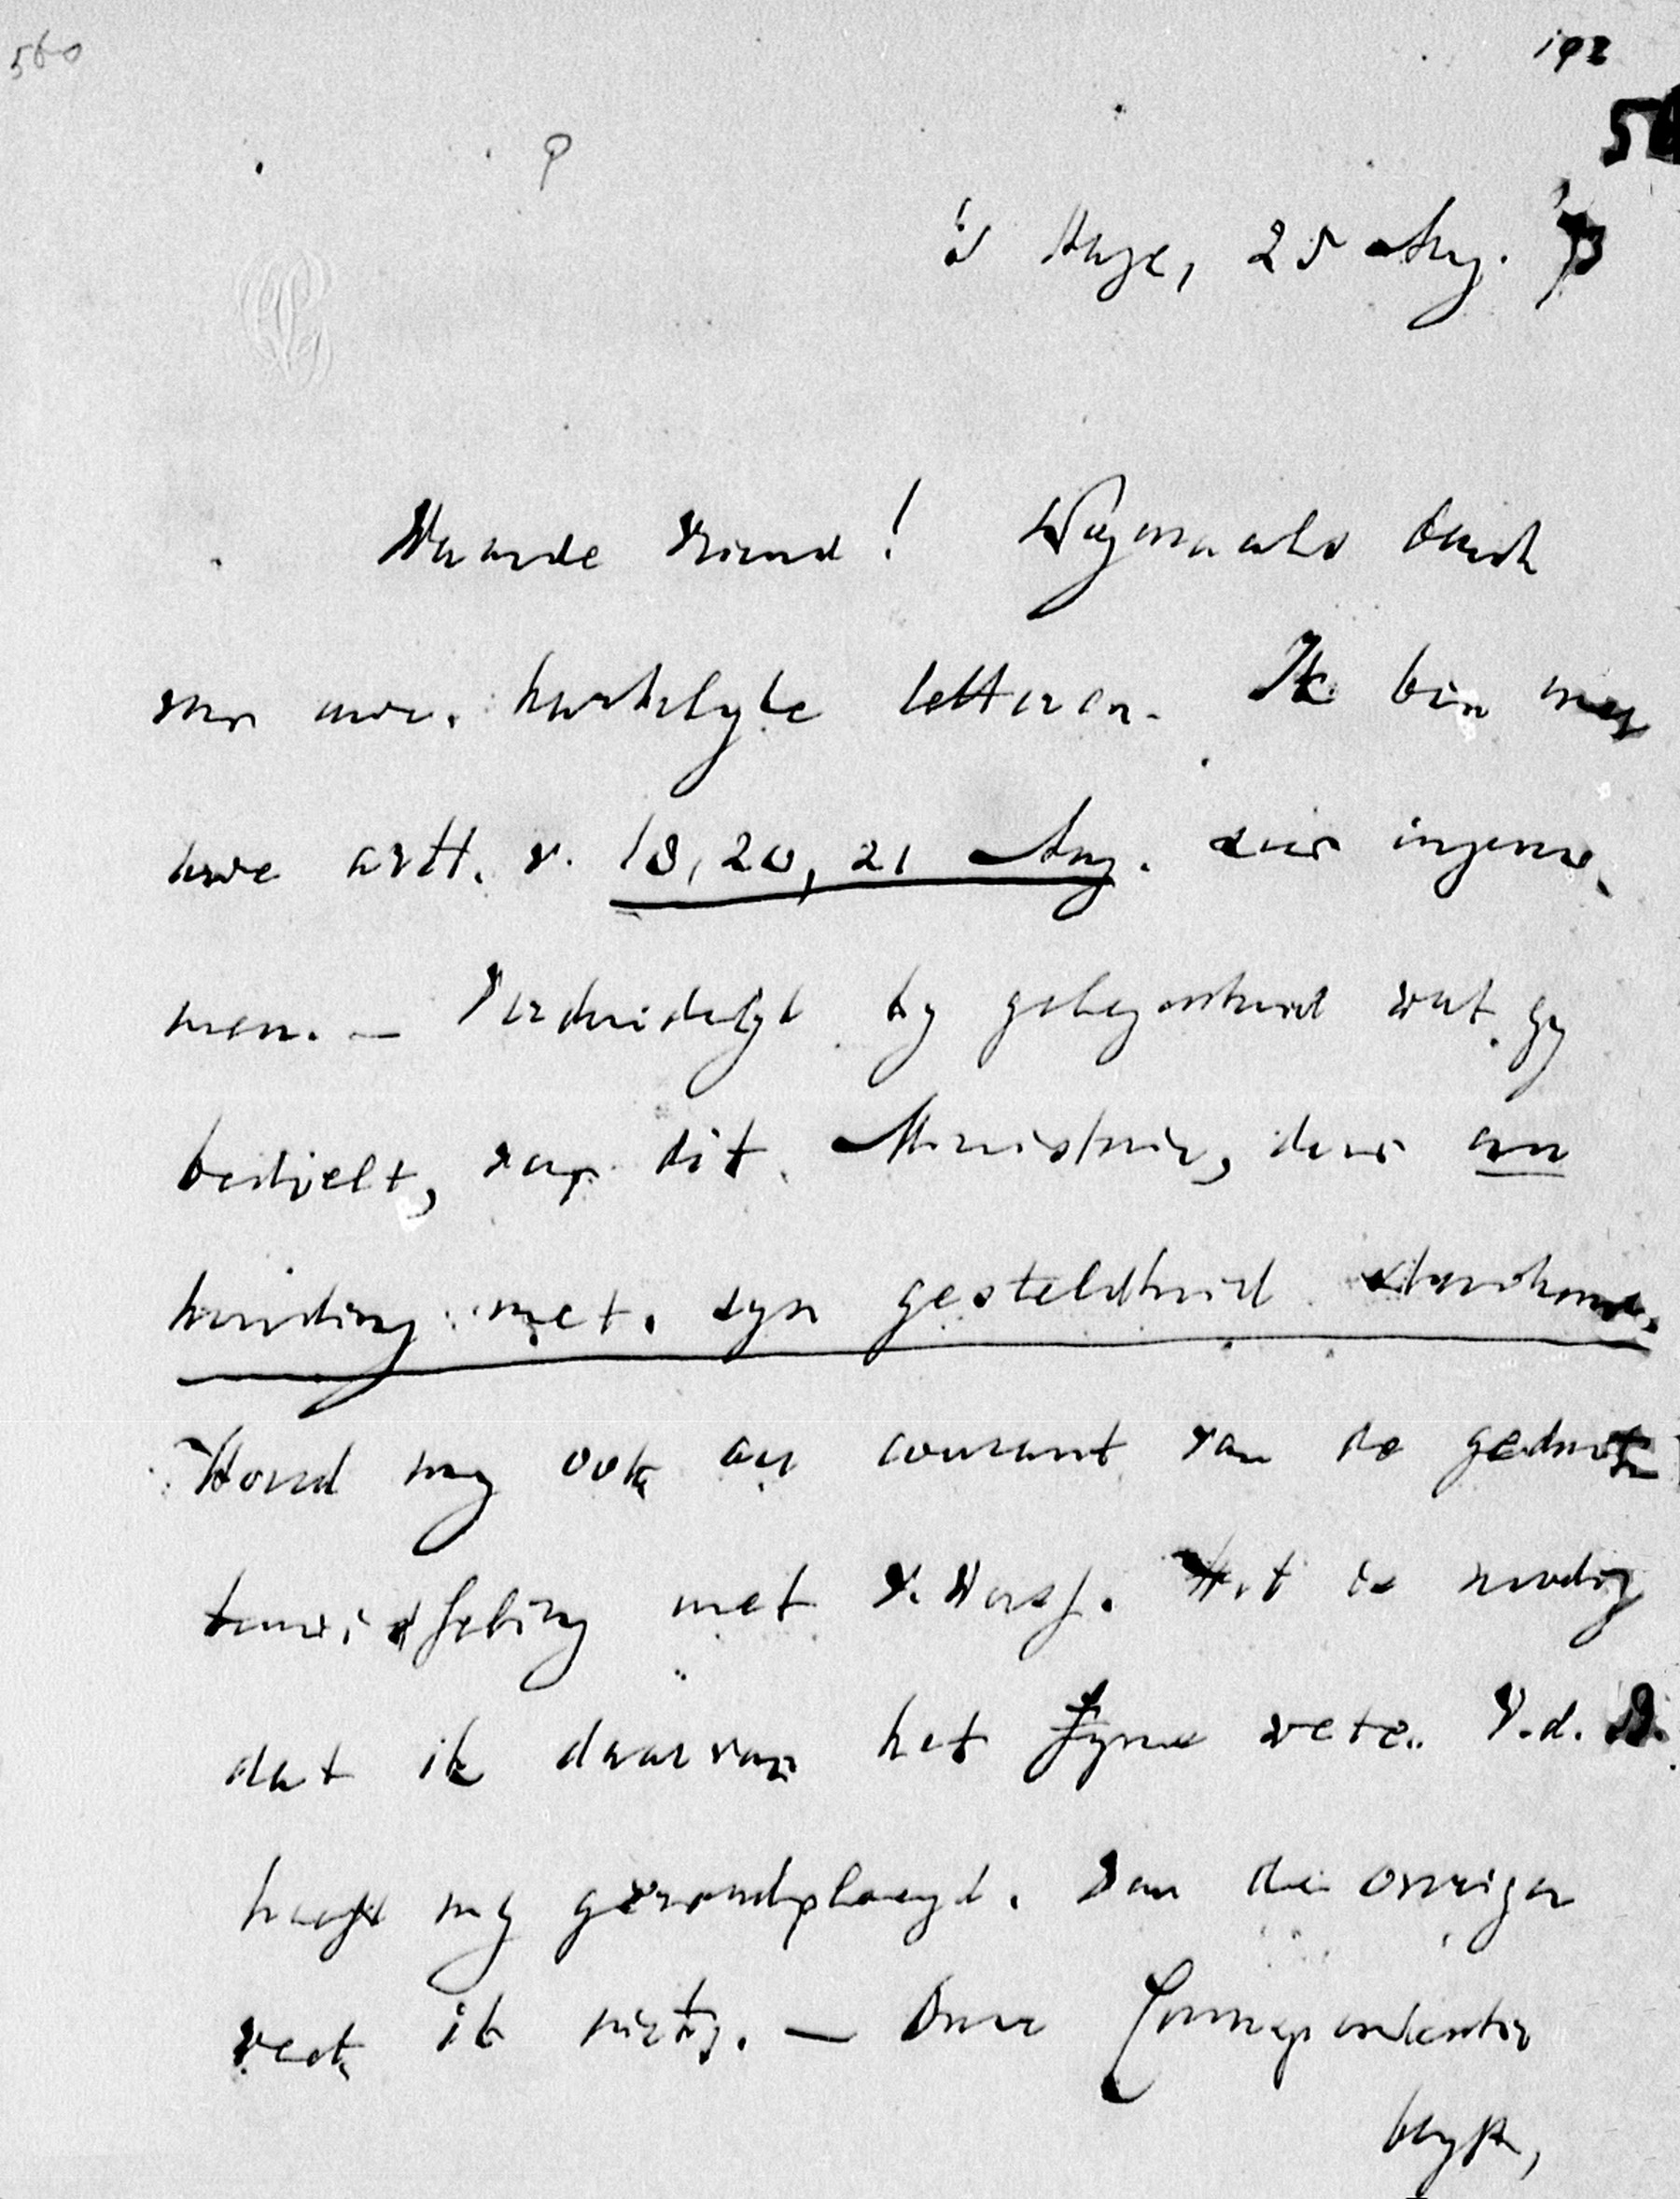 560
192
's Hage, 25 Aug. '73
Waarde Vriend! Nogmaals dank
voor uwe hartelyke letteren. Ik ben met
uwe artt. v. 18, 20, 21 Aug. zeer ingeno-
men. — Verdedigt by gelegenheid wat gy
bedoelt, dit Ministerie, door
houding met zyn gesteldheid
Houd my ook au courant van de gedach-
tenwisseling met Het is noodig
dat ik daarvan het fyne wete. V.d.
heeft my geraadpleegd. Van de overigen
weet ik niets. — Onze Correspondentie
blyft,